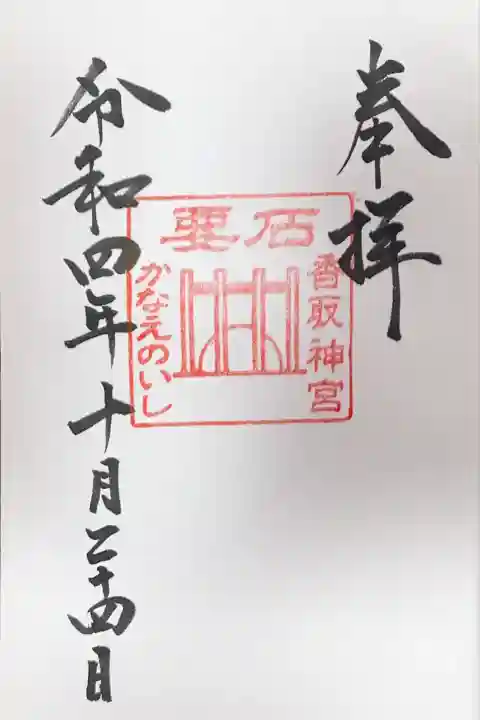 奉拝
要石
香取神宮
かなえのいし
令和四年十月二十四日